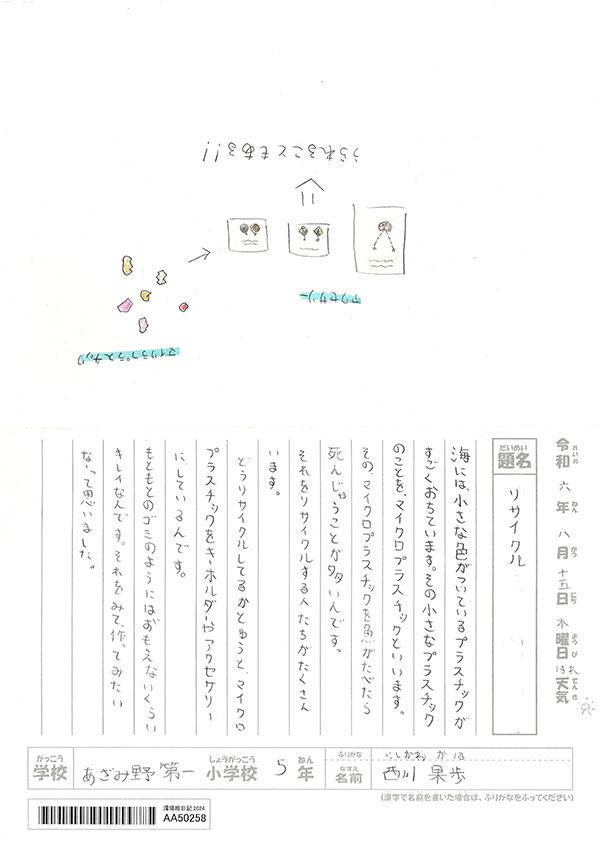 うられることもある!!
アクセサリー
マイクロプラスチック
令和六年八月十五日木曜日はれ天気
れいわ ねん がつ にち ようび てんき
だいめい
題名
リサイクル
海には、小さな色がついているプラスチックが
すごくおちています。その小さなプラスチック
のことを、マイクロプラスチックといいます。
その、マイクロプラスチックを魚がたべたら
死んじゃうことが多いんです。
それをリサイクルする人たちがたくさん
います。
どうリサイクルしてるかとゆうと、マイクロ
プラスチックをキーホルダーやアクセサリー
に、しているんです。
もともとのゴミのようにはおもえないくらい
キレイなんです。それをみて、作ってみたい
な、って思いました。
がっこう
学校
あざみ野第一
しょうがっこう
小学校
5
ねん
年
ふりがな
にしかわ かほ
なまえ
名前
西川 果歩
(漢字で名前を書いた場合は、ふりがなをふってください)
環境絵日記2024
AA50258